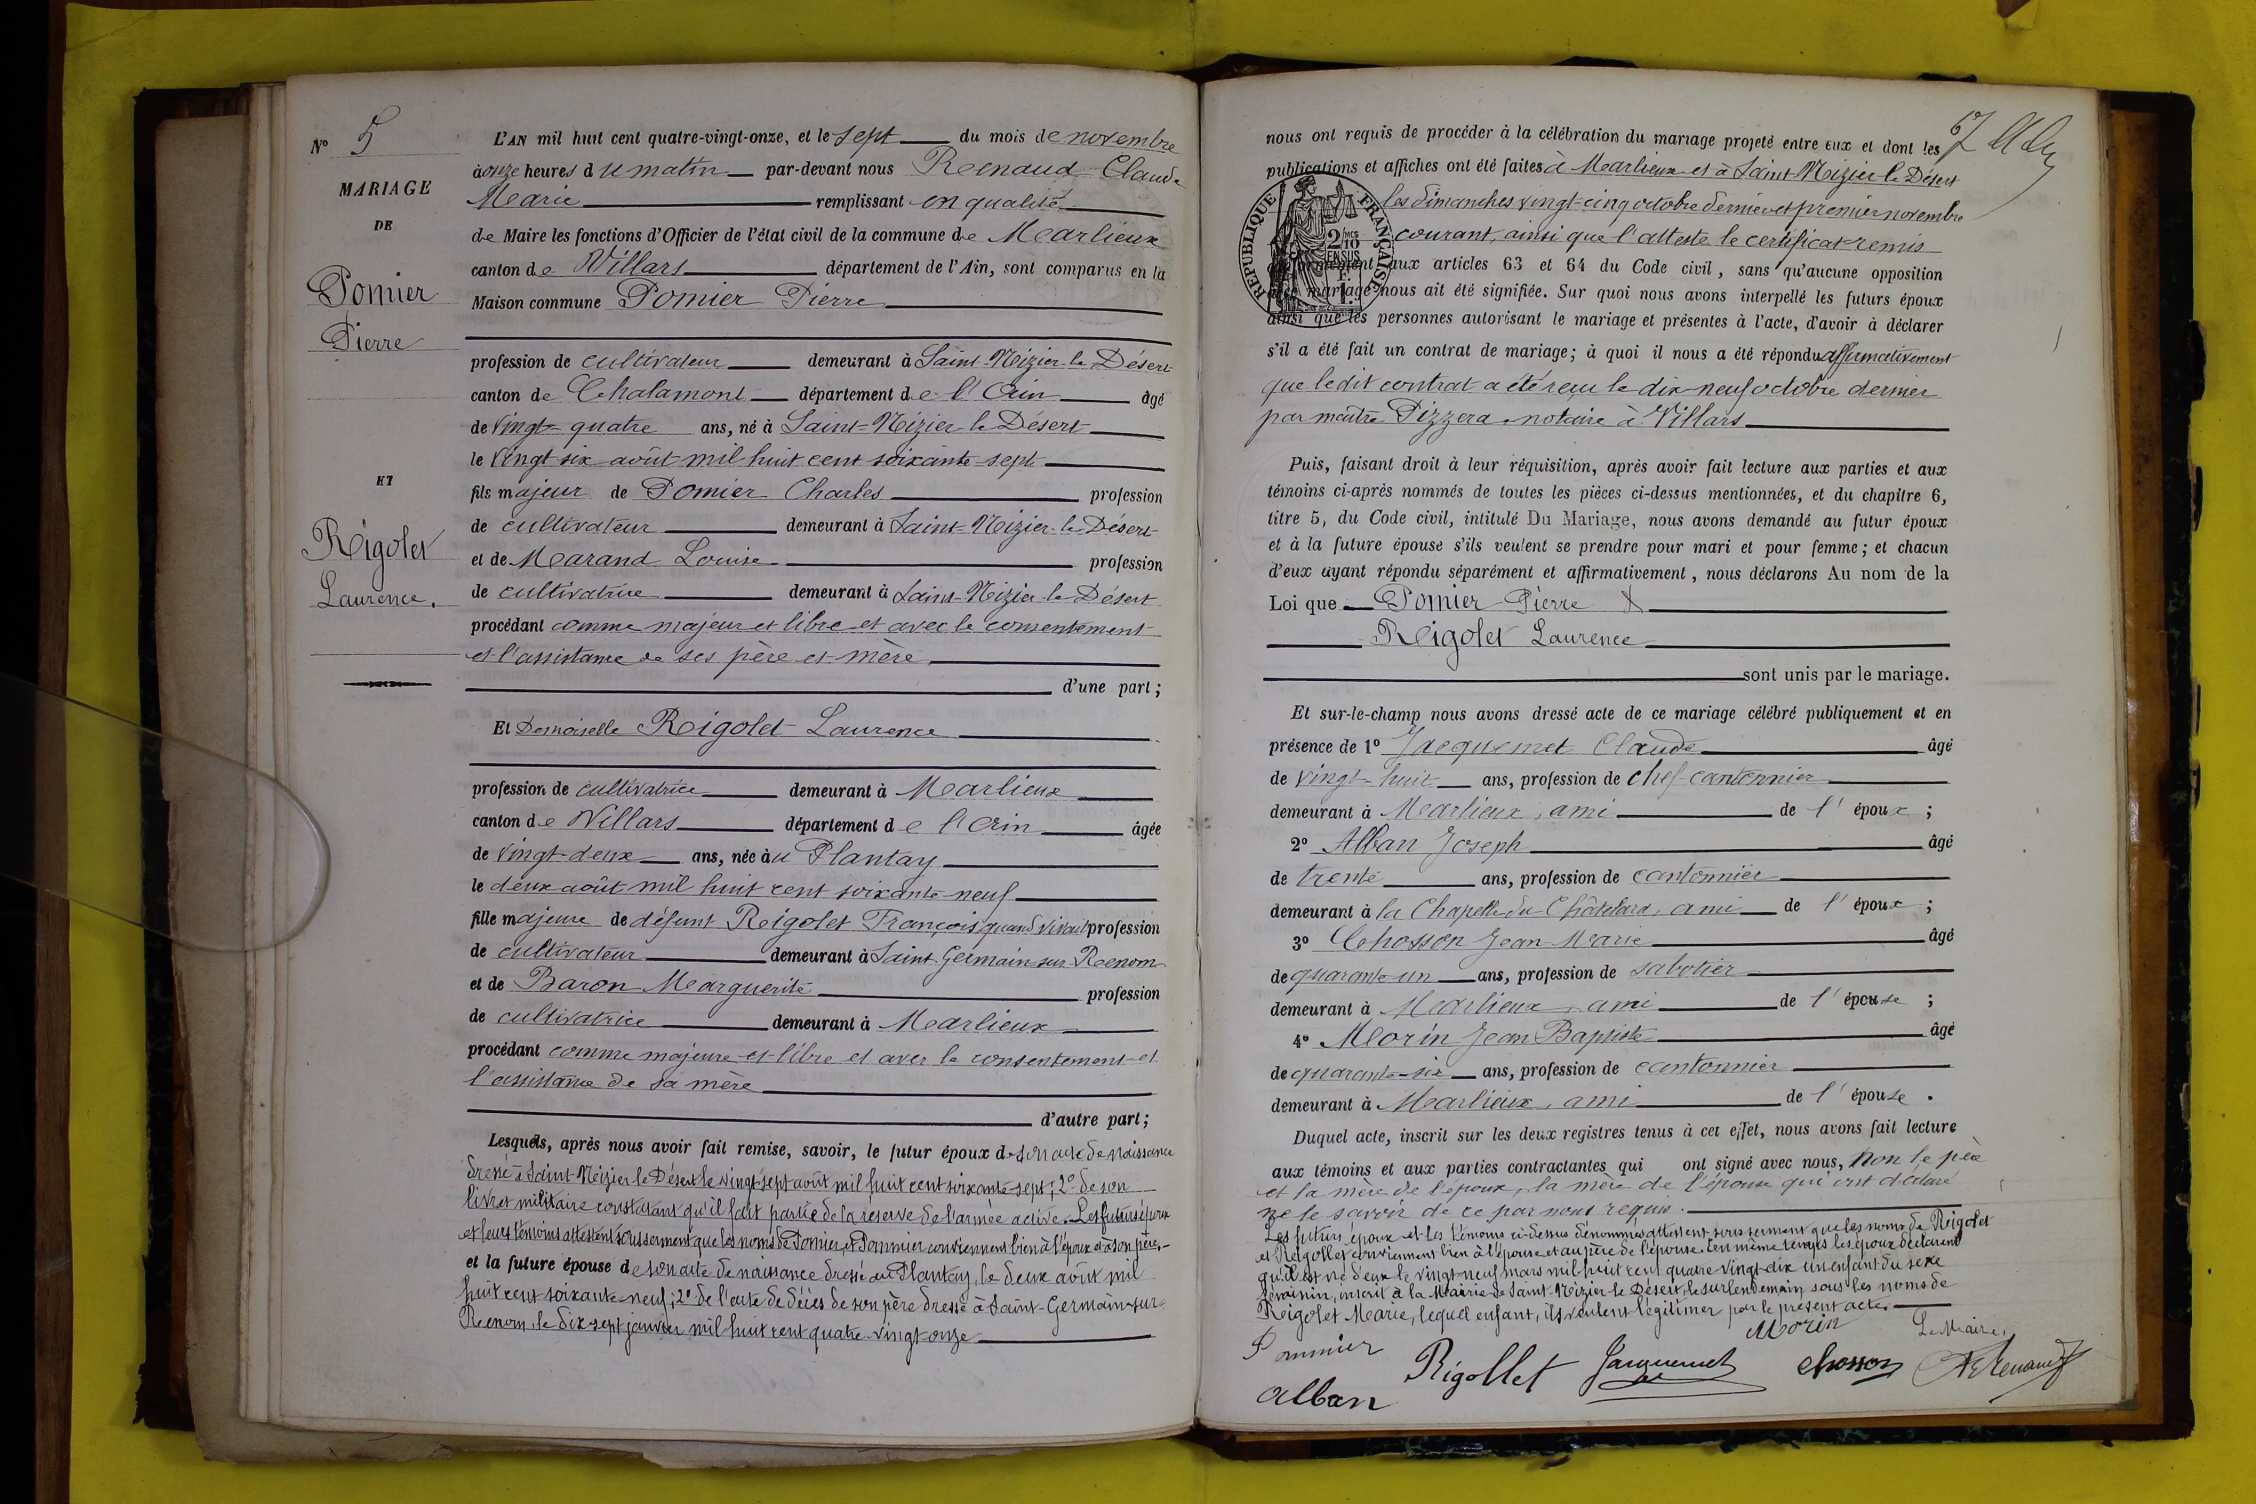 N° 5
MARIAGE
DE
Pomier
Pierre
ET
Rigolet
Laurence.
L'AN mil huit cent quatre-vingt-onze, et le sept du mois de novembre
à onze heures du matin par-devant nous Renaud Claude
Marie remplissant en qualité
de Maire les fonctions d'Officier de l'état civil de la commune de Marlieux
canton de Villars département de l'Ain, sont comparus en la
Maison commune Pomier Pierre
profession de cultivateur demeurant à Saint-Nizier-le-Désert
canton de Chalamont département de l'Ain âgé
de vingt-quatre ans, né à Saint-Nizier-le-Désert
le vingt-six août mil huit cent soixante-sept
fils majeur de Pomier Charles profession
de cultivateur demeurant à Saint-Nizier-le-Désert
et de Marand Louise profession
de cultivatrice demeurant à Saint-Nizier-le-Désert
procédant comme majeur et libre et avec le consentement
et l'assistance de ses père et mère
d'une part;
Et Demoiselle Rigolet Laurence
profession de cultivatrice demeurant à Marlieux
canton de Villars département de l'Ain âgée
de vingt-deux ans, née au Plantay
le deux août mil huit cent soixante-neuf
fille majeure de défunt Rigolet François quand vivait profession
de cultivateur demeurant à Saint-Germain-sur-Renom
et de Baron Marguerite profession
de cultivatrice demeurant à Marlieux
procédant comme majeure et libre et avec le consentement et
l'assistance de sa mère
d'autre part;
Lesquels, après nous avoir fait remise, savoir, le futur époux de son acte de naissance
dressé à Saint-Nizier-le-Désert le vingt-sept août mil huit cent soixante-sept; 2° de son
livret militaire constatant qu'il fait partie de la réserve de l'armée active. Les futurs époux
et leurs témoins attestent sous serment que les noms de Pomier et Pommier conviennent bien à l'époux et à son père.
et la future épouse de son acte de naissance dressé au Plantay, le deux août mil
huit cent soixante-neuf; 2° de l'acte de décès de son père dressé à Saint-Germain-sur-
Renom, le dix-sept janvier mil huit cent quatre-vingt-onze
67
nous ont requis de procéder à la célébration du mariage projeté entre eux et dont les
publications et affiches ont été faites à Marlieux et à Saint-Nizier-le-Désert
les dimanches vingt-cinq octobre dernier et premier novembre
courant, ainsi que l'atteste le certificat remis
conformément aux articles 63 et 64 du Code civil, sans qu'aucune opposition
audit mariage nous ait été signifiée. Sur quoi nous avons interpellé les futurs époux
ainsi que les personnes autorisant le mariage et présentes à l'acte, d'avoir à déclarer
s'il a été fait un contrat de mariage; à quoi il nous a été répondu affirmativement
que ledit contrat a été reçu le dix-neuf octobre dernier
par maître Pizzera notaire à Villars
RÉPUBLIQUE FRANÇAISE
2/10 EN SUS
1 F.
Puis, faisant droit à leur réquisition, après avoir fait lecture aux parties et aux
témoins ci-après nommés de toutes les pièces ci-dessus mentionnées, et du chapitre 6,
titre 5, du Code civil, intitulé Du Mariage, nous avons demandé au futur époux
et à la future épouse s'ils veulent se prendre pour mari et pour femme; et chacun
d'eux ayant répondu séparément et affirmativement, nous déclarons Au nom de la
Loi que Pomier Pierre &
Rigolet Laurence
sont unis par le mariage.
Et sur-le-champ nous avons dressé acte de ce mariage célébré publiquement et en
présence de 1° Jacquemet Claude âgé
de vingt-huit ans, profession de chef-cantonnier
demeurant à Marlieux, ami de l'époux;
2° Alban Joseph âgé
de trente ans, profession de cantonnier
demeurant à la Chapelle-du-Châtelard, ami de l'époux;
3° Chosson Jean-Marie âgé
de quarante-un ans, profession de sabotier
demeurant à Marlieux, ami de l'épouse;
4° Morin Jean Baptiste âgé
de quarante-six ans, profession de cantonnier
demeurant à Marlieux, ami de l'épouse.
Duquel acte, inscrit sur les deux registres tenus à cet effet, nous avons fait lecture
aux témoins et aux parties contractantes qui ont signé avec nous, non le père
et la mère de l'époux, la mère de l'épouse qui ont déclaré
ne le savoir de ce par nous requis.
Les futurs époux et les témoins ci-dessus dénommés attestent sous serment que les noms de Rigolet
et Rigollet conviennent bien à l'épouse et au père de l'épouse. En même temps les époux déclarent
qu'il est né d'eux le vingt-neuf mars mil huit cent quatre-vingt-dix un enfant du sexe
féminin, inscrit à la Mairie de Saint-Nizier-le-Désert, le surlendemain sous les noms de
Rigolet Marie, lequel enfant, ils veulent légitimer par le présent acte.
Pommier
Morin
Le Maire,
Rigollet
Jacquemet
Chosson
Renaud
Alban